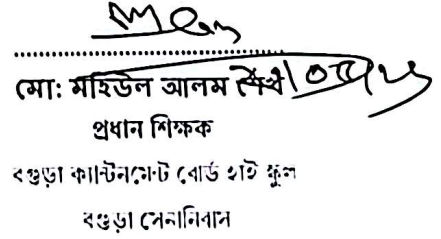 মো: মহিউল আলম শেখ
প্রধান শিক্ষক
বগুড়া ক্যান্টনমেন্ট বোর্ড হাই স্কুল
বগুড়া সেনানিবাস